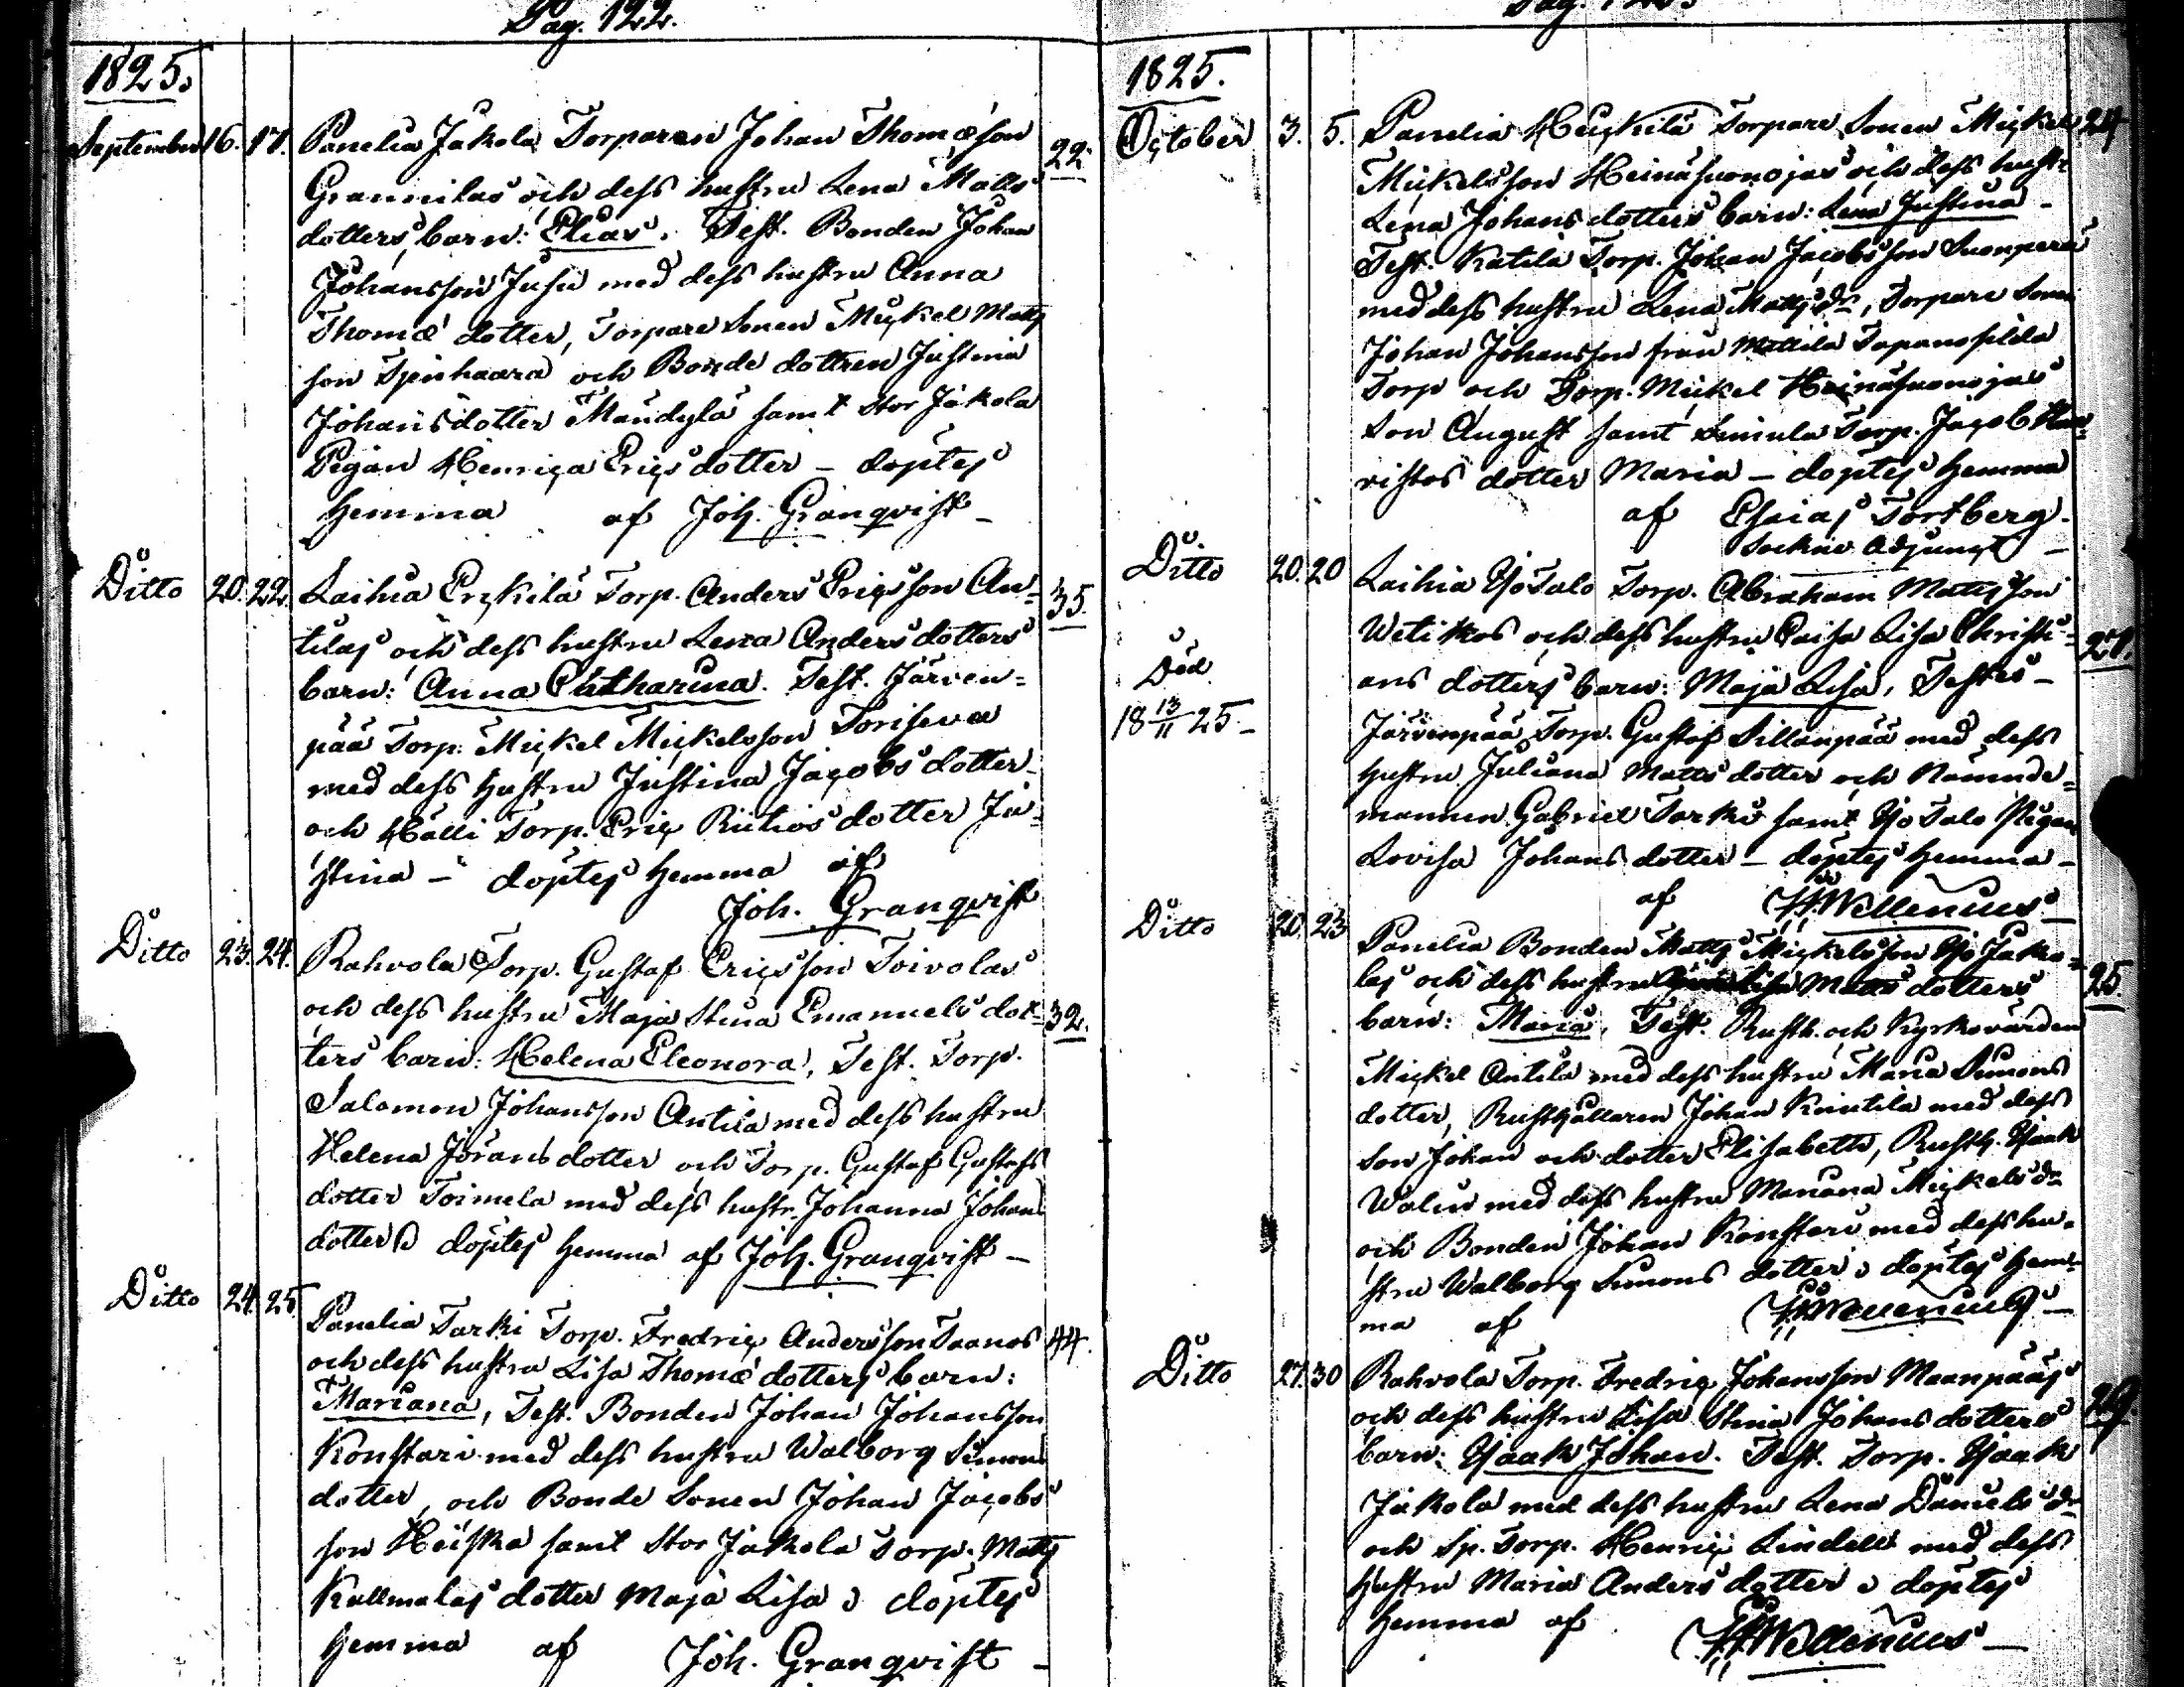 Pag. 122.
1825.
September 16. 17. Panelia Jakola Torparen Johan Thomæson 22.
Grannilas och dess hustru Lena Matts
dotters barn: Elias. Test. Bonden Johan
Johansson Jusu med dess hustru Anna
Thomæ dotter, Torpare Sonen Mickel Matts
son Spinhaara och Bonde dottren Justina
Johansdotter Mandylä samt Stor Jakola
Pigan Henrica Ericsdotter – döptes
hemma af Joh. Granqvist –
Ditto 20. 22. Laihia Erckilä Torp. Anders Ericsson An= 35.
tilas och dess hustru Lena Anders dotters
barn: Anna Catharina. Test. Järven=
pää Torp. Mickel Mickelsson Toriseva
med dess hustru Justina Jacobs dotter
och Hälli Torp. Eric Riitios dotter Ju=
stina – döptes hemma af
Joh. Granqvist
Ditto 23. 24. Rahvola Torp. Gustaf Ericsson Toivolas
och dess hustru Maja Stina Emanuels dot= 32.
ters barn: Helena Eleonora, Test. Torp.
Salomon Johansson Antila med dess hustru
Helena Jörans dotter och Torp. Gustaf Gustafs
dotter Toimela med dess hustr. Johanna Johans
dotter döptes hemma af Joh. Granqvist –
Ditto 24. 25 Panelia Tarki Torp. Fredric Andersson Saanos 44.
och dess hustru Lisa Thomæ dotters barn:
Mariana, Test. Bonden Johan Johansson
Konstari med dess hustru Walborg Simons
dotter, och Bonde Sonen Johan Jacobs
son Heiska samt Stor Jakola Torp. Matts
Kullmalas dotter Maja Lisa döptes
hemma af Joh. Granqvist –
1825.
October 3. 5. Panelia Heickilä Torpare Sonen Mickel 24
Mickelsson Heinäsuonojas och dess hustr
Lena Johans dotters barn: Lena Justina –
Test. Katila Torp. Johan Jacobsson Suonperä
med dess hustru Lena Matts dr, Torpare Sonen
Johan Johansson från Mattila
Torp och Torp. Mickel Heinäsuonojas
Son August samt Simula Torp. Jacob
ristos dotter Maria – döptes hemma
af Esaias Tortberg.
Sockne Adjunct –
Ditto 20. 20 Laihia Yso Talo Torp. Abraham Mattsson
Wetikos och dess hustru Caisa Lisa Christi= 27.
ans dotters barn: Maja Lisa, Testes –
Död
18 13/11 25 –
Järvenpää Torp. Gustaf Sillanpää med dess
hustru Juliana Matts dotter och Nämnde=
mannen Gabriel Tarki samt Yso Talo Pigan
Lovisa Johans dotter – döptes hemma –
af Wellenius –
Ditto 20. 23 Panelia Bonden Matts Mickelsson Yso Jako=
las och dess hustru Matts dotters 25.
barn: Maria, Test. Rusth. och Kyrkovärden
Mickel Antila med dess hustru Maria Simons
dotter, Rusthållaren Johan Knutila med dess
Son Johan och dotter Elisabeth, Rusth. Ysaak
Walus med dess hustru Mariana Mickels dr
och Bonden Johan Konstari med dess hu=
stru Walborg Simons dotter döptes hem=
ma af Wellenius –
Ditto 27. 30 Rahvola Torp. Fredric Johansson Maanpääs
och dess hustru Lisa Stina Johans dotters 29
barn: Ysaak Johan. Test. Torp. Ysaak
Jakola med dess hustru Lena Daniels dr
och Sp. Torp. Henric Lindell med dess
hustru Maria Anders dotter döptes
hemma af Wellenius –